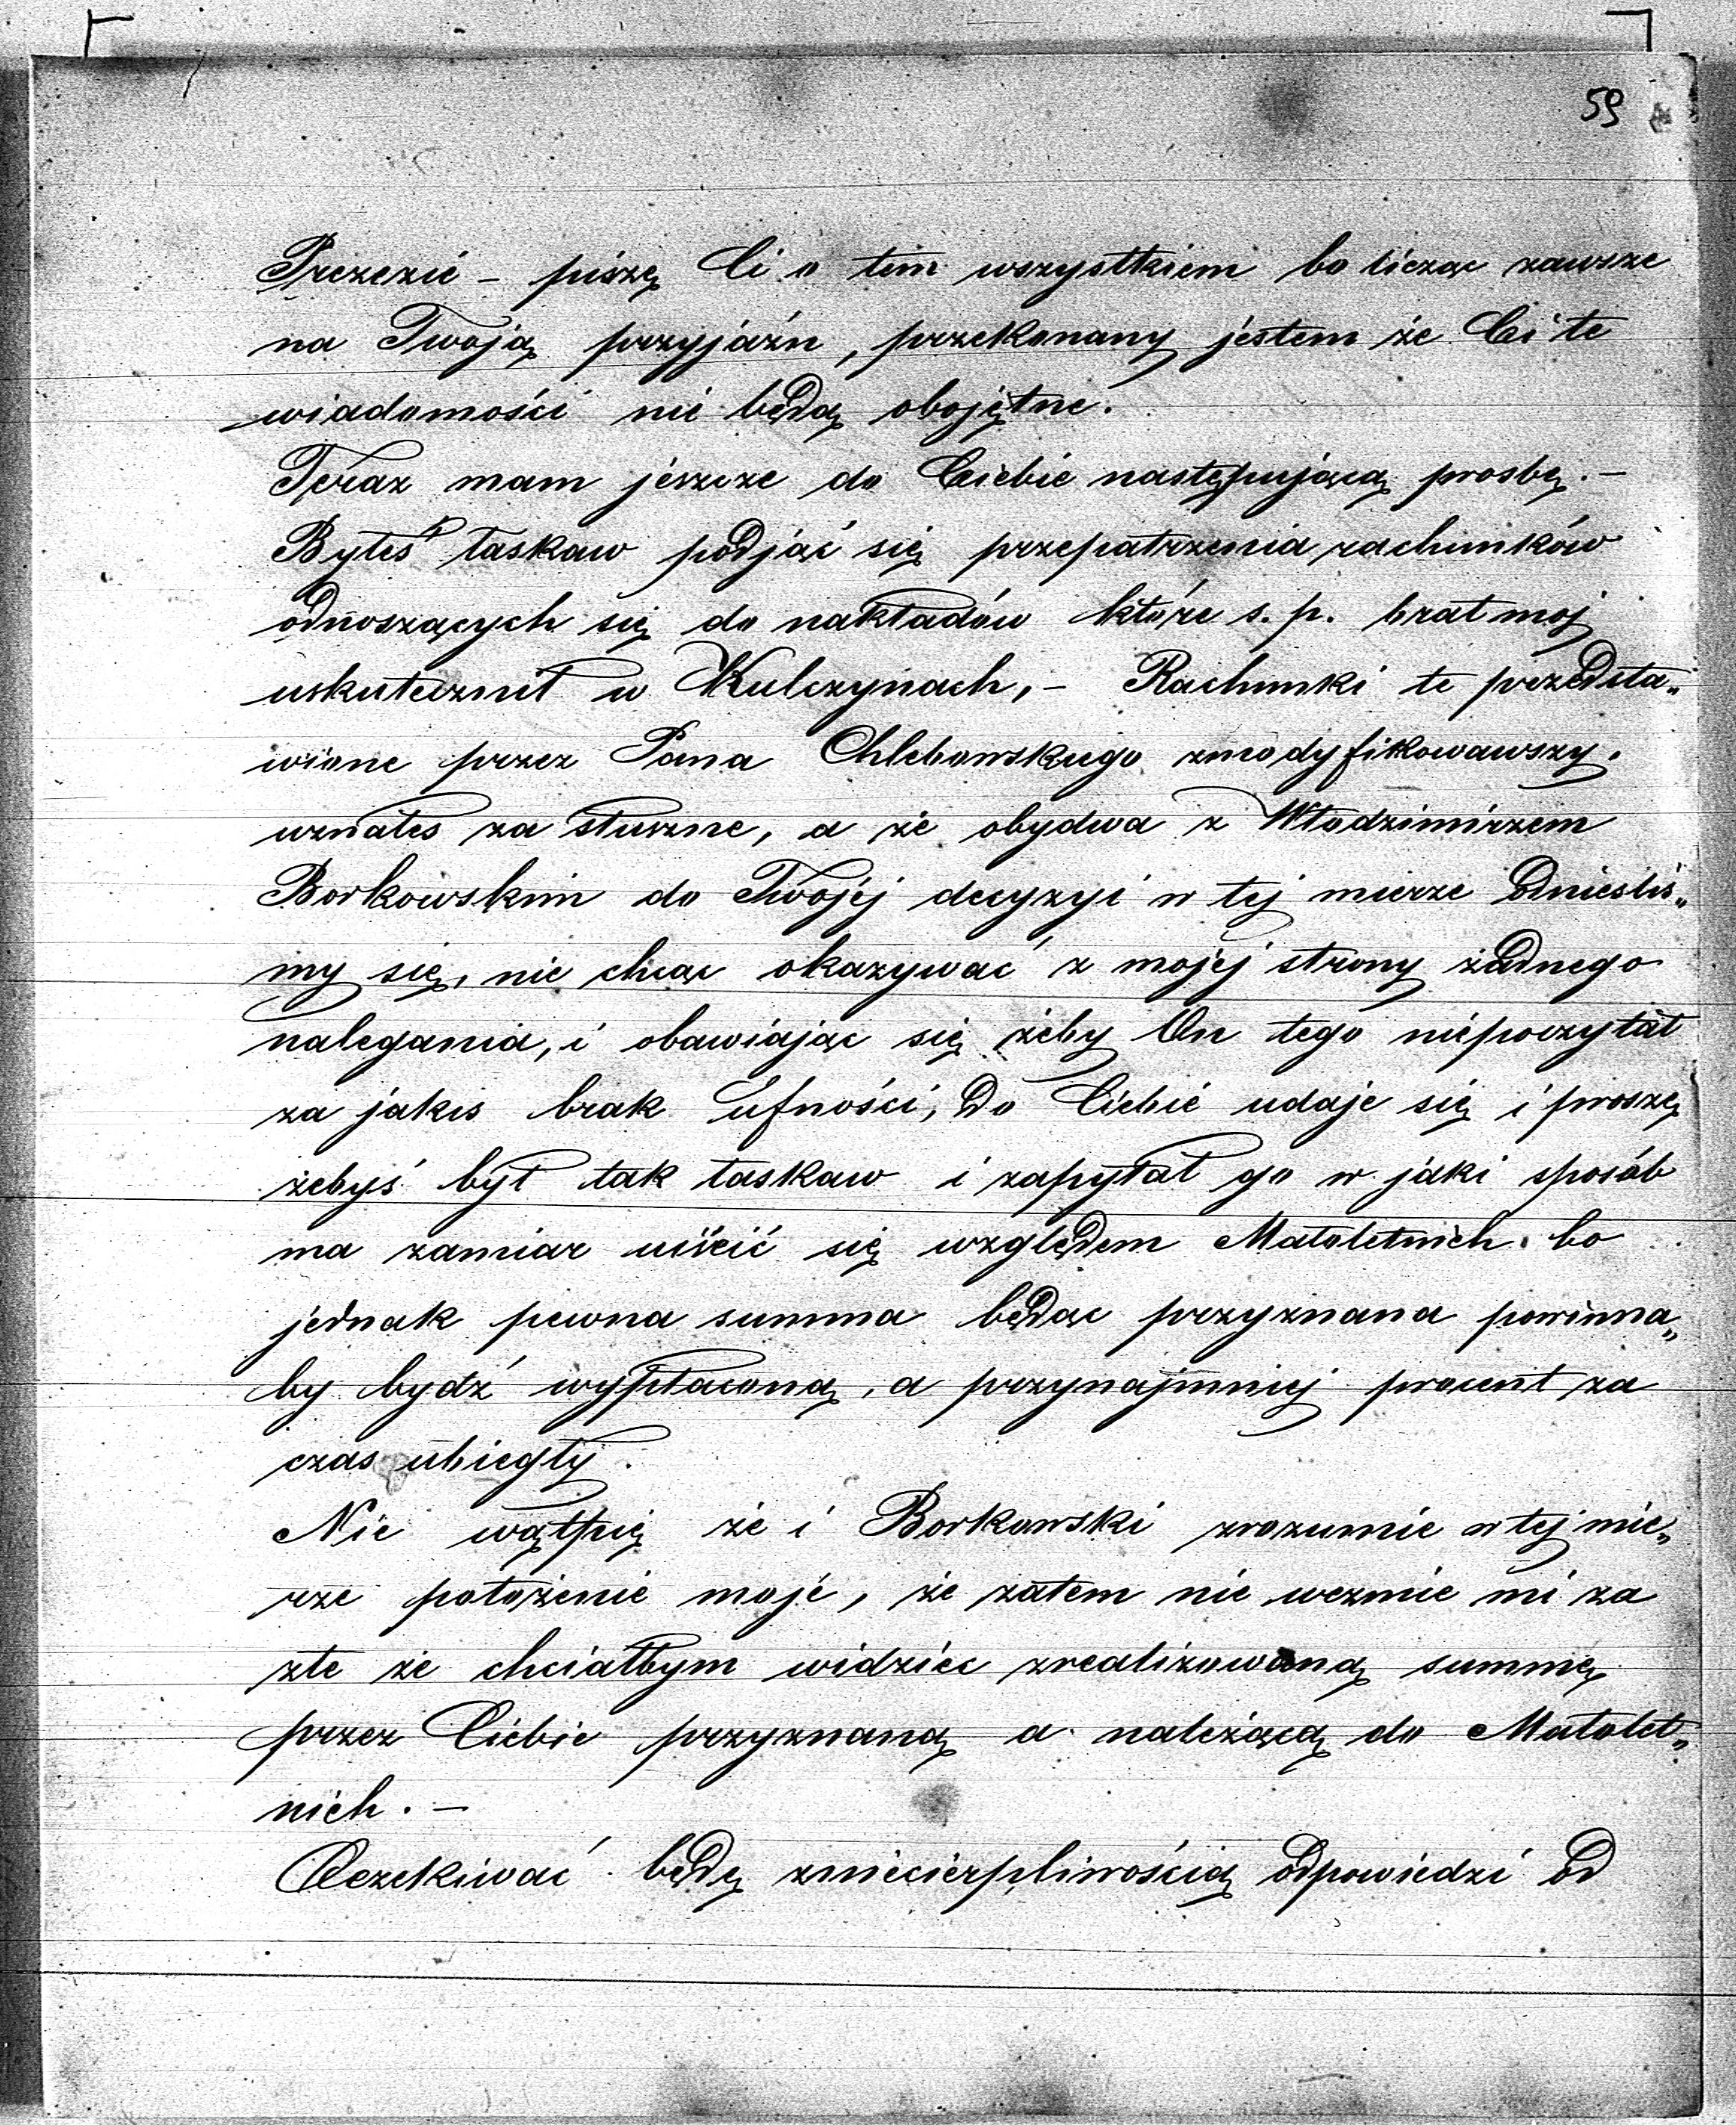 59
Prezezie – piszę Ci o tem wszystkiem bo licząc zawsze
na Twoją przyjaźń, przekonany jestem że Ci te
wiadomości nie będą obojętne.
Teraz mam jeszcze do Ciebie następującą prosbę. –
Byłeś łaskaw podjąć się przepatrzenia rachunków
odnoszących się do nakładów które s. p. brat moj
uskutecznił w Kulczynach, – Rachunki te przedsta„
wione przez Pana Chlebowskiego zmodyfikowawszy,
uznałes za słuszne, a że obydwa z Włodzimirzem
Borkowskim do Twojej decyzyi w tej mierze odnieslis„
my się, nie chcąc okazywać z mojej strony żadnego
nalegania, i obawiając się żeby On tego niepoczytał
za jakis brak ufności, do Ciebie udaje się i proszę
żebyś był tak łaskaw i zapytał go w jaki sposób
ma zamiar uiścić się względem Małoletnich. bo
jednak pewna summa będąc przyznana powinna„
by bydź wypłaconą, a przynajmniej procent za
czas ubiegły.
Nie wątpię że i Borkowski zrozumie w tej mie„
rze położenie moje, że zatem nie wezmie mi za
złe że chciałbym widziec zrealizowaną summę
przez Ciebie przyznaną a należącą do Małolet„
nich. –
Oczekiwać będę zniecierpliwością odpowiedzi od